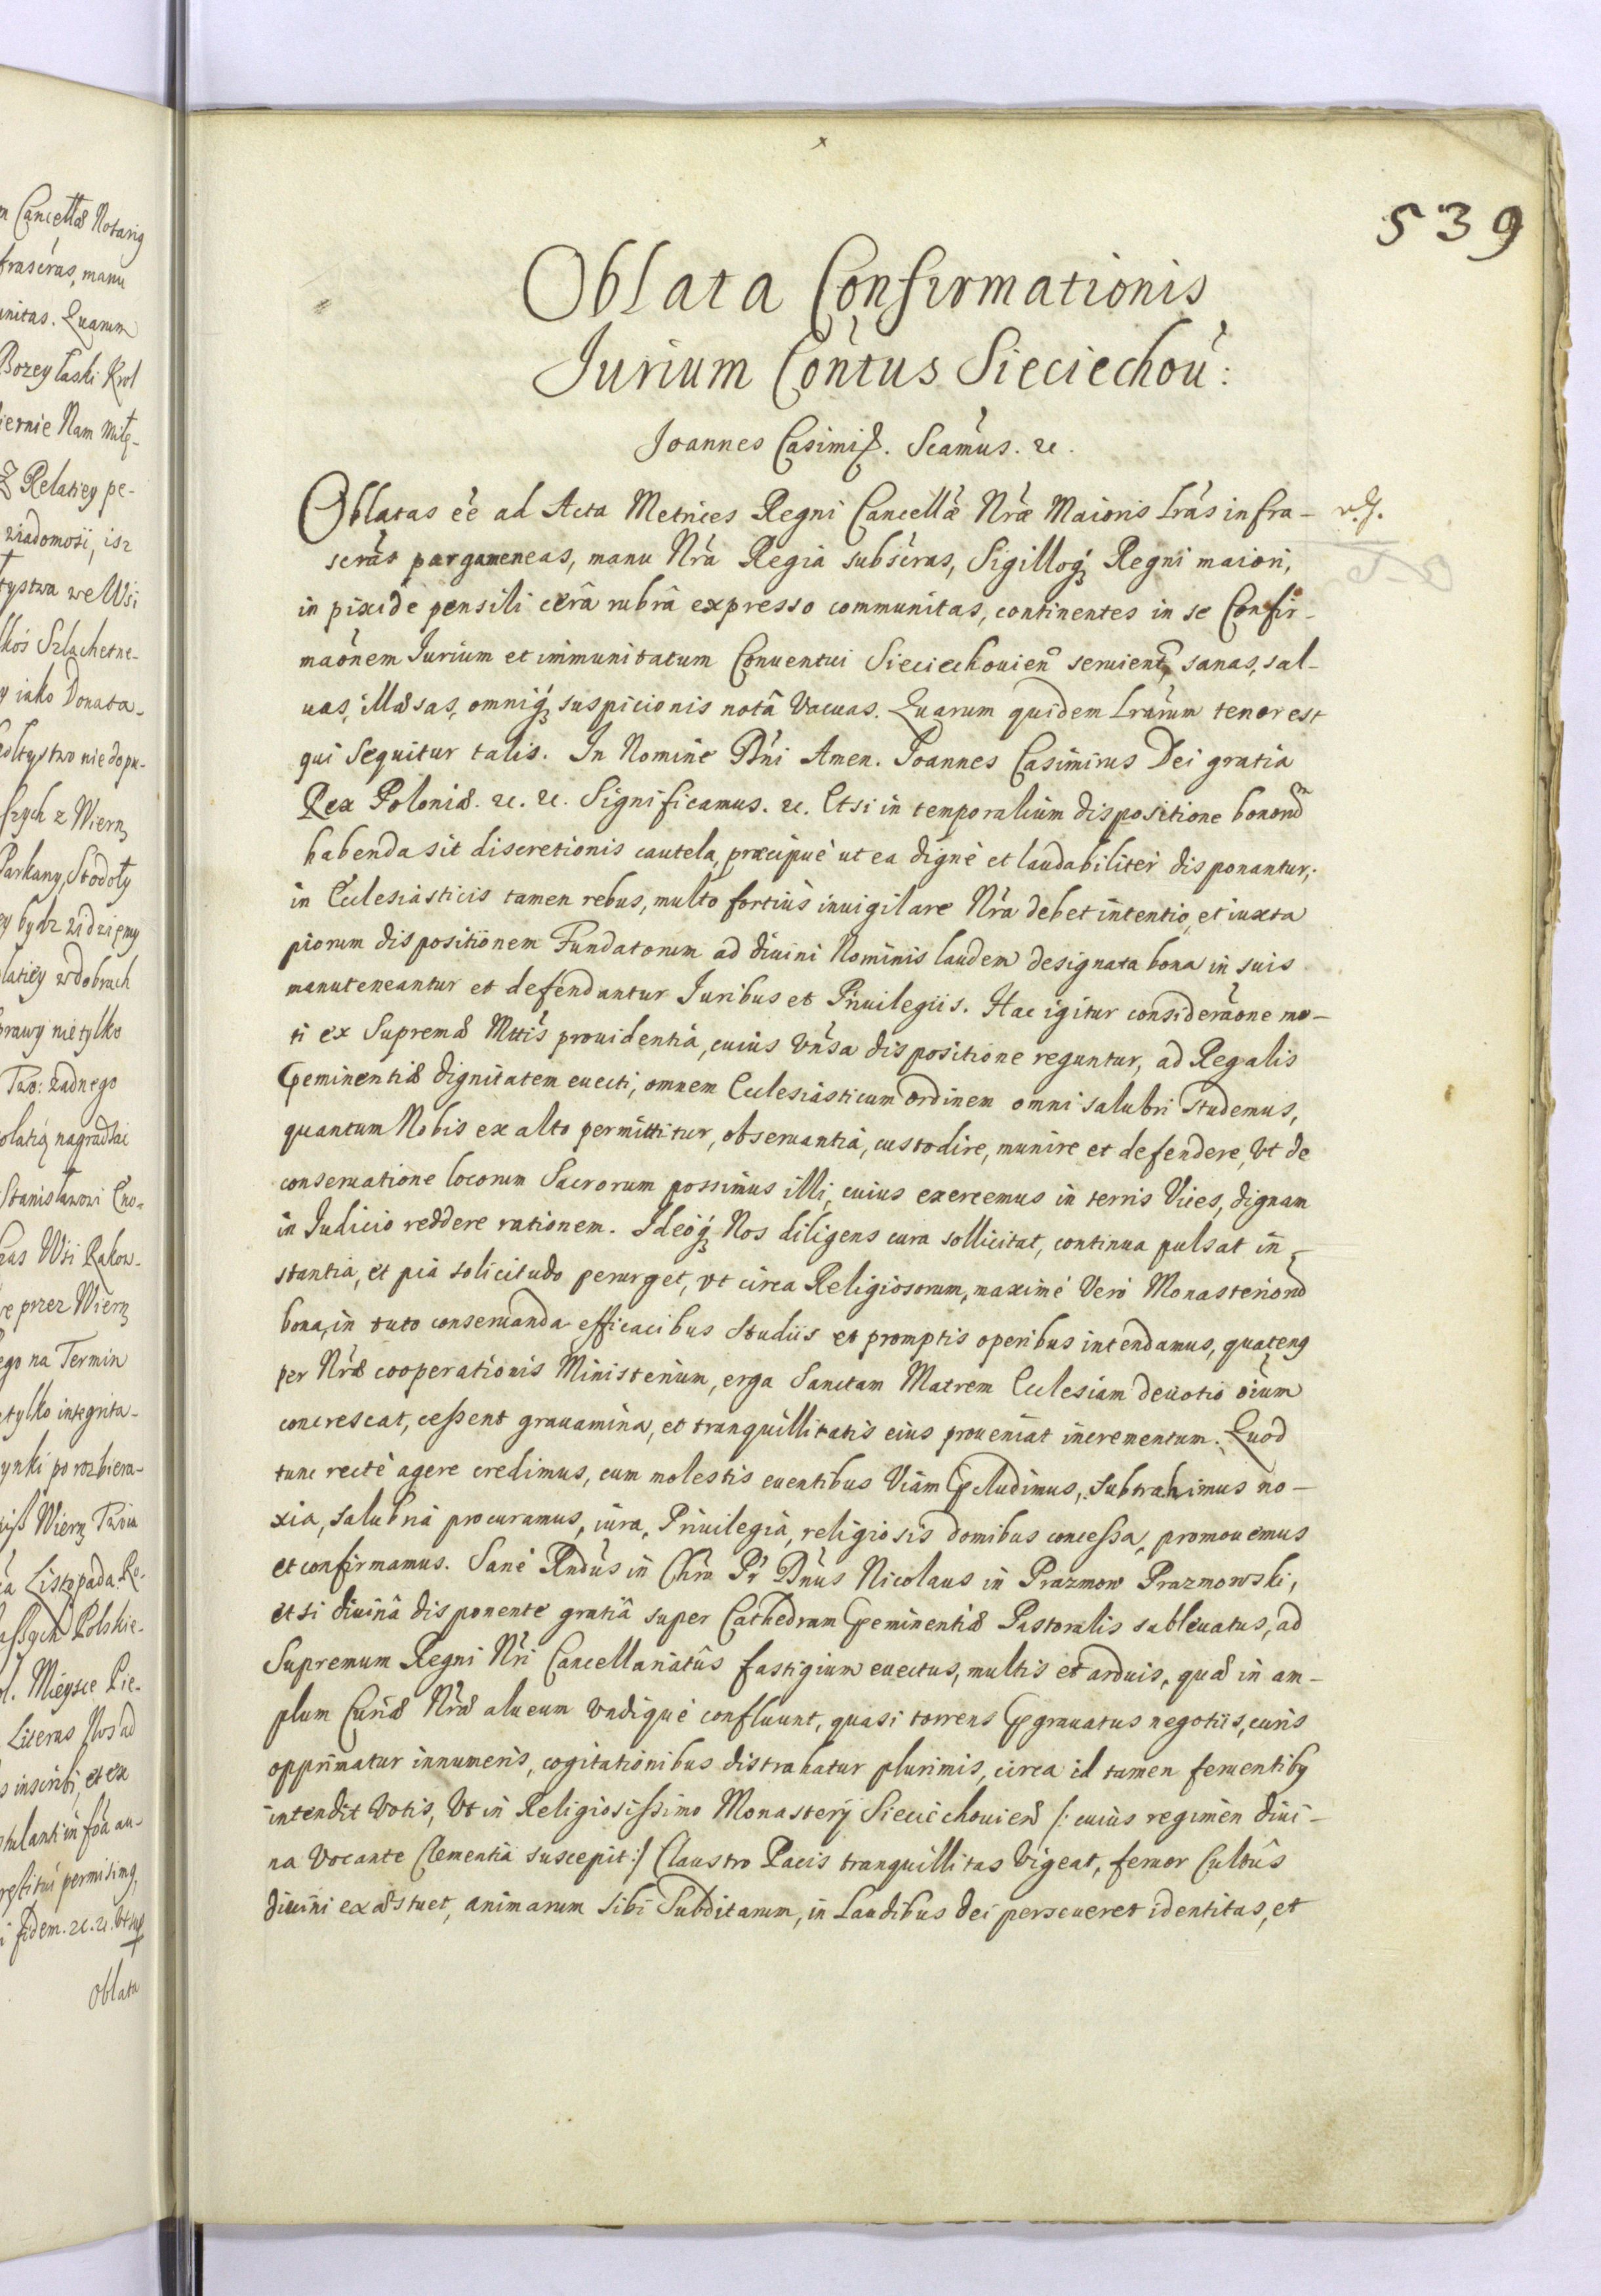 n Cancellæ Notariq
frascras, manu
unitas. Quarum
Bozey Łaski Krol
iernie Nam miłę-
Z Relatiey pe-
wiadomosi, isz
tystwa we Wsi
kos Szlachetne-
y iako Donata-
oltystwo nie dopu-
szych z Wierz
Parkany, Stodoły
ey bydz widziemy
latiey w dobrach
prawy nie tylko
Two: żadnego
olatią nagradzać
Stanisławowi Cno-
eas Wsi Rakow-
re przez Wierz
ego na Termin
etylko integrita-
ynki po rozbiera-
Wierz Twoia
ca Listopada Ro-
aszych Polskie-
ol. Mieysce Pie-
Literas Nos ad
s inscribi, et ex
tulanti in foã au-
restitui permisimq,
i fidem. &c. &c. Ut sup
Oblata
539
Oblata Confirmationis
Jurium Cóntus Sieciechou:
Joannes Casimiꝝ. Scamus. &c.
Oblatas eè ad Acta Metrices Regni Cancellæ Nræ Maioris Lrás infra-
scrás pargameneas, manu Nrá Regia subscras, Sigilloq́ꝫ Regni maiori,
in pixide pensili cerâ rubrâ expresso communitas, continentes in se Confir-
maónem Jurium et immunitatum Conuentui Sieciechouien seruient, sanas, sal-
uas, illæsas, omniq́ꝫ suspicionis notâ Vacuas. Quarum quidem Lrárum tenor est
qui Sequitur talis. In Nomine Dńi Amen. Joannes Casimirus Dei gratia
Rex Poloniæ. &c. &c. Significamus. &c. Etsi in temporalium dispositione bonorũ
habenda sit discretionis cautela, præcipuè ut ea dignè et laudabiliter disponantur;
in Ecclesiasticis tamen rebus, multo fortiùs inuigilare Nrá debet intentio, et iuxta
piorum dispositionem Fundatorum ad diuini Nominis laudem designata bona in suis
manuteneantur et defendantur Juribus et Priuilegiis. Hac igitur consideraóne mo-
ti ex Supremæ Mttis prouidentiâ, cuius Vńsa dispositione reguntur, ad Regalis
Pręeminentiæ dignitatem euecti, omnem Ecclesiasticum ordinem omni salubri studemus,
quantum Nobis ex alto permittitur, obseruantiâ, custodire, munire et defendere, Ut de
conseruatione locorum Sacrorum possimus illi, cuius exercemus in terris Vices, dignam
in Judicio reddere rationem. Ideoq́ꝫ Nos diligens cura sollicitat, continua pulsat in-
stantia, et pia solicitudo perurget, ut circa Religiosorum, maximè Verò Monasteriorũ
bona, in tuto conseruanda efficacibus studiis et promptis operibus intendamus, quatenq
per Nræ cooperationis Ministerium, erga Sanctam Matrem Ecclesiam deuotio oíum
concrescat, cessent grauamina, et tranquillitatis eius proueniat incrementum. Quod
tunc rectè agere credimus, cum molestis euentibus Viam pręcludimus, subtrahimus no-
xia, salubria procuramus, iura, Priuilegia, religiosis domibus concessa, promouemus
et confirmamus. Sanè Rńdus in Chrõ Pr Dńus Nicolaus in Prazmow Prazmowski,
etsi diuinâ disponente gratiâ super Cathedram pręeminentiæ Pastoralis subleuatus, ad
Supremum Regni Nri Cancellariatûs fastigium euectus, multis et arduis, quæ in am-
plum Curiæ Nræ alueum undiquè confluunt, quasi torrens pręgrauatus negotiis, curis
opprimatur innumeris, cogitationibus distrahatur plurimis, circa id tamen feruentibq
intendit Votis, Ut in Religiosissimo Monasterÿ Sieciechouień /: cuius regimen diui-
na Vocante Clementia suscepit :/ Claustro Pacis tranquillitas Vigeat, feruor Cultûs
diuini exæstuet, animarum sibi Subditarum, in Laudibus Dei perseueret identitas, et